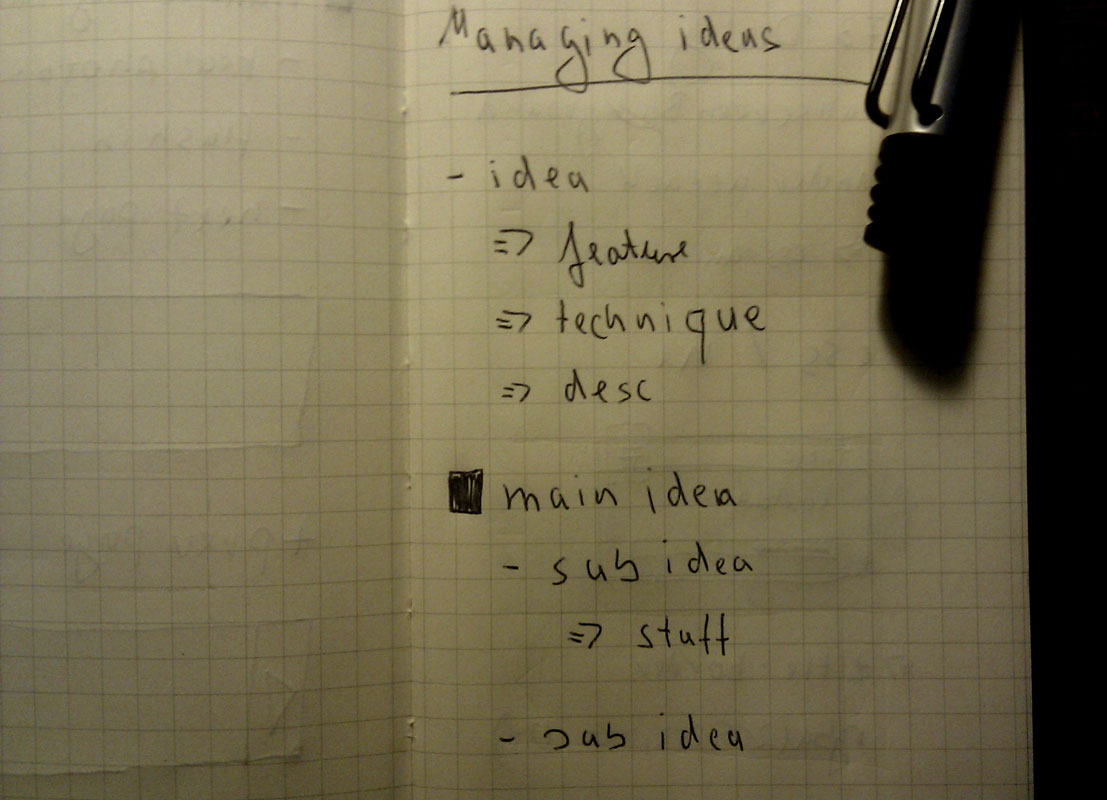 Managing ideas
- idea
=> feature
=> technique
=> desc
■ main idea
- sub idea
=> stuff
- sub idea